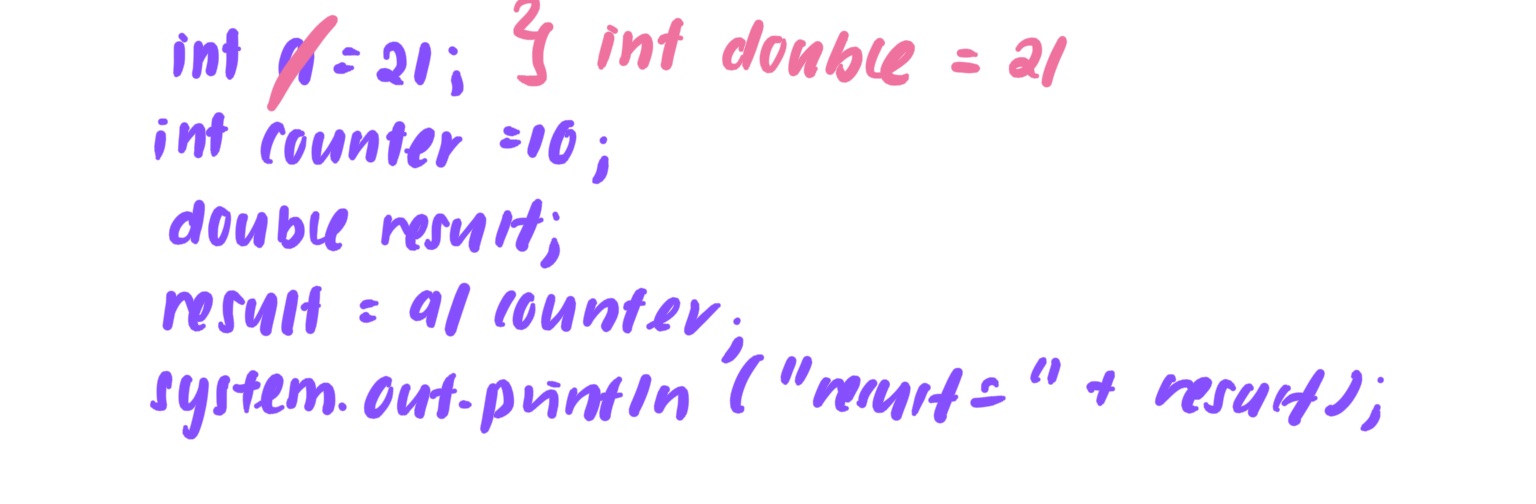 int a = 21; } int double = 21
int counter = 10;
double result;
result = a/ counter;
system.out.println ("result = " + result);